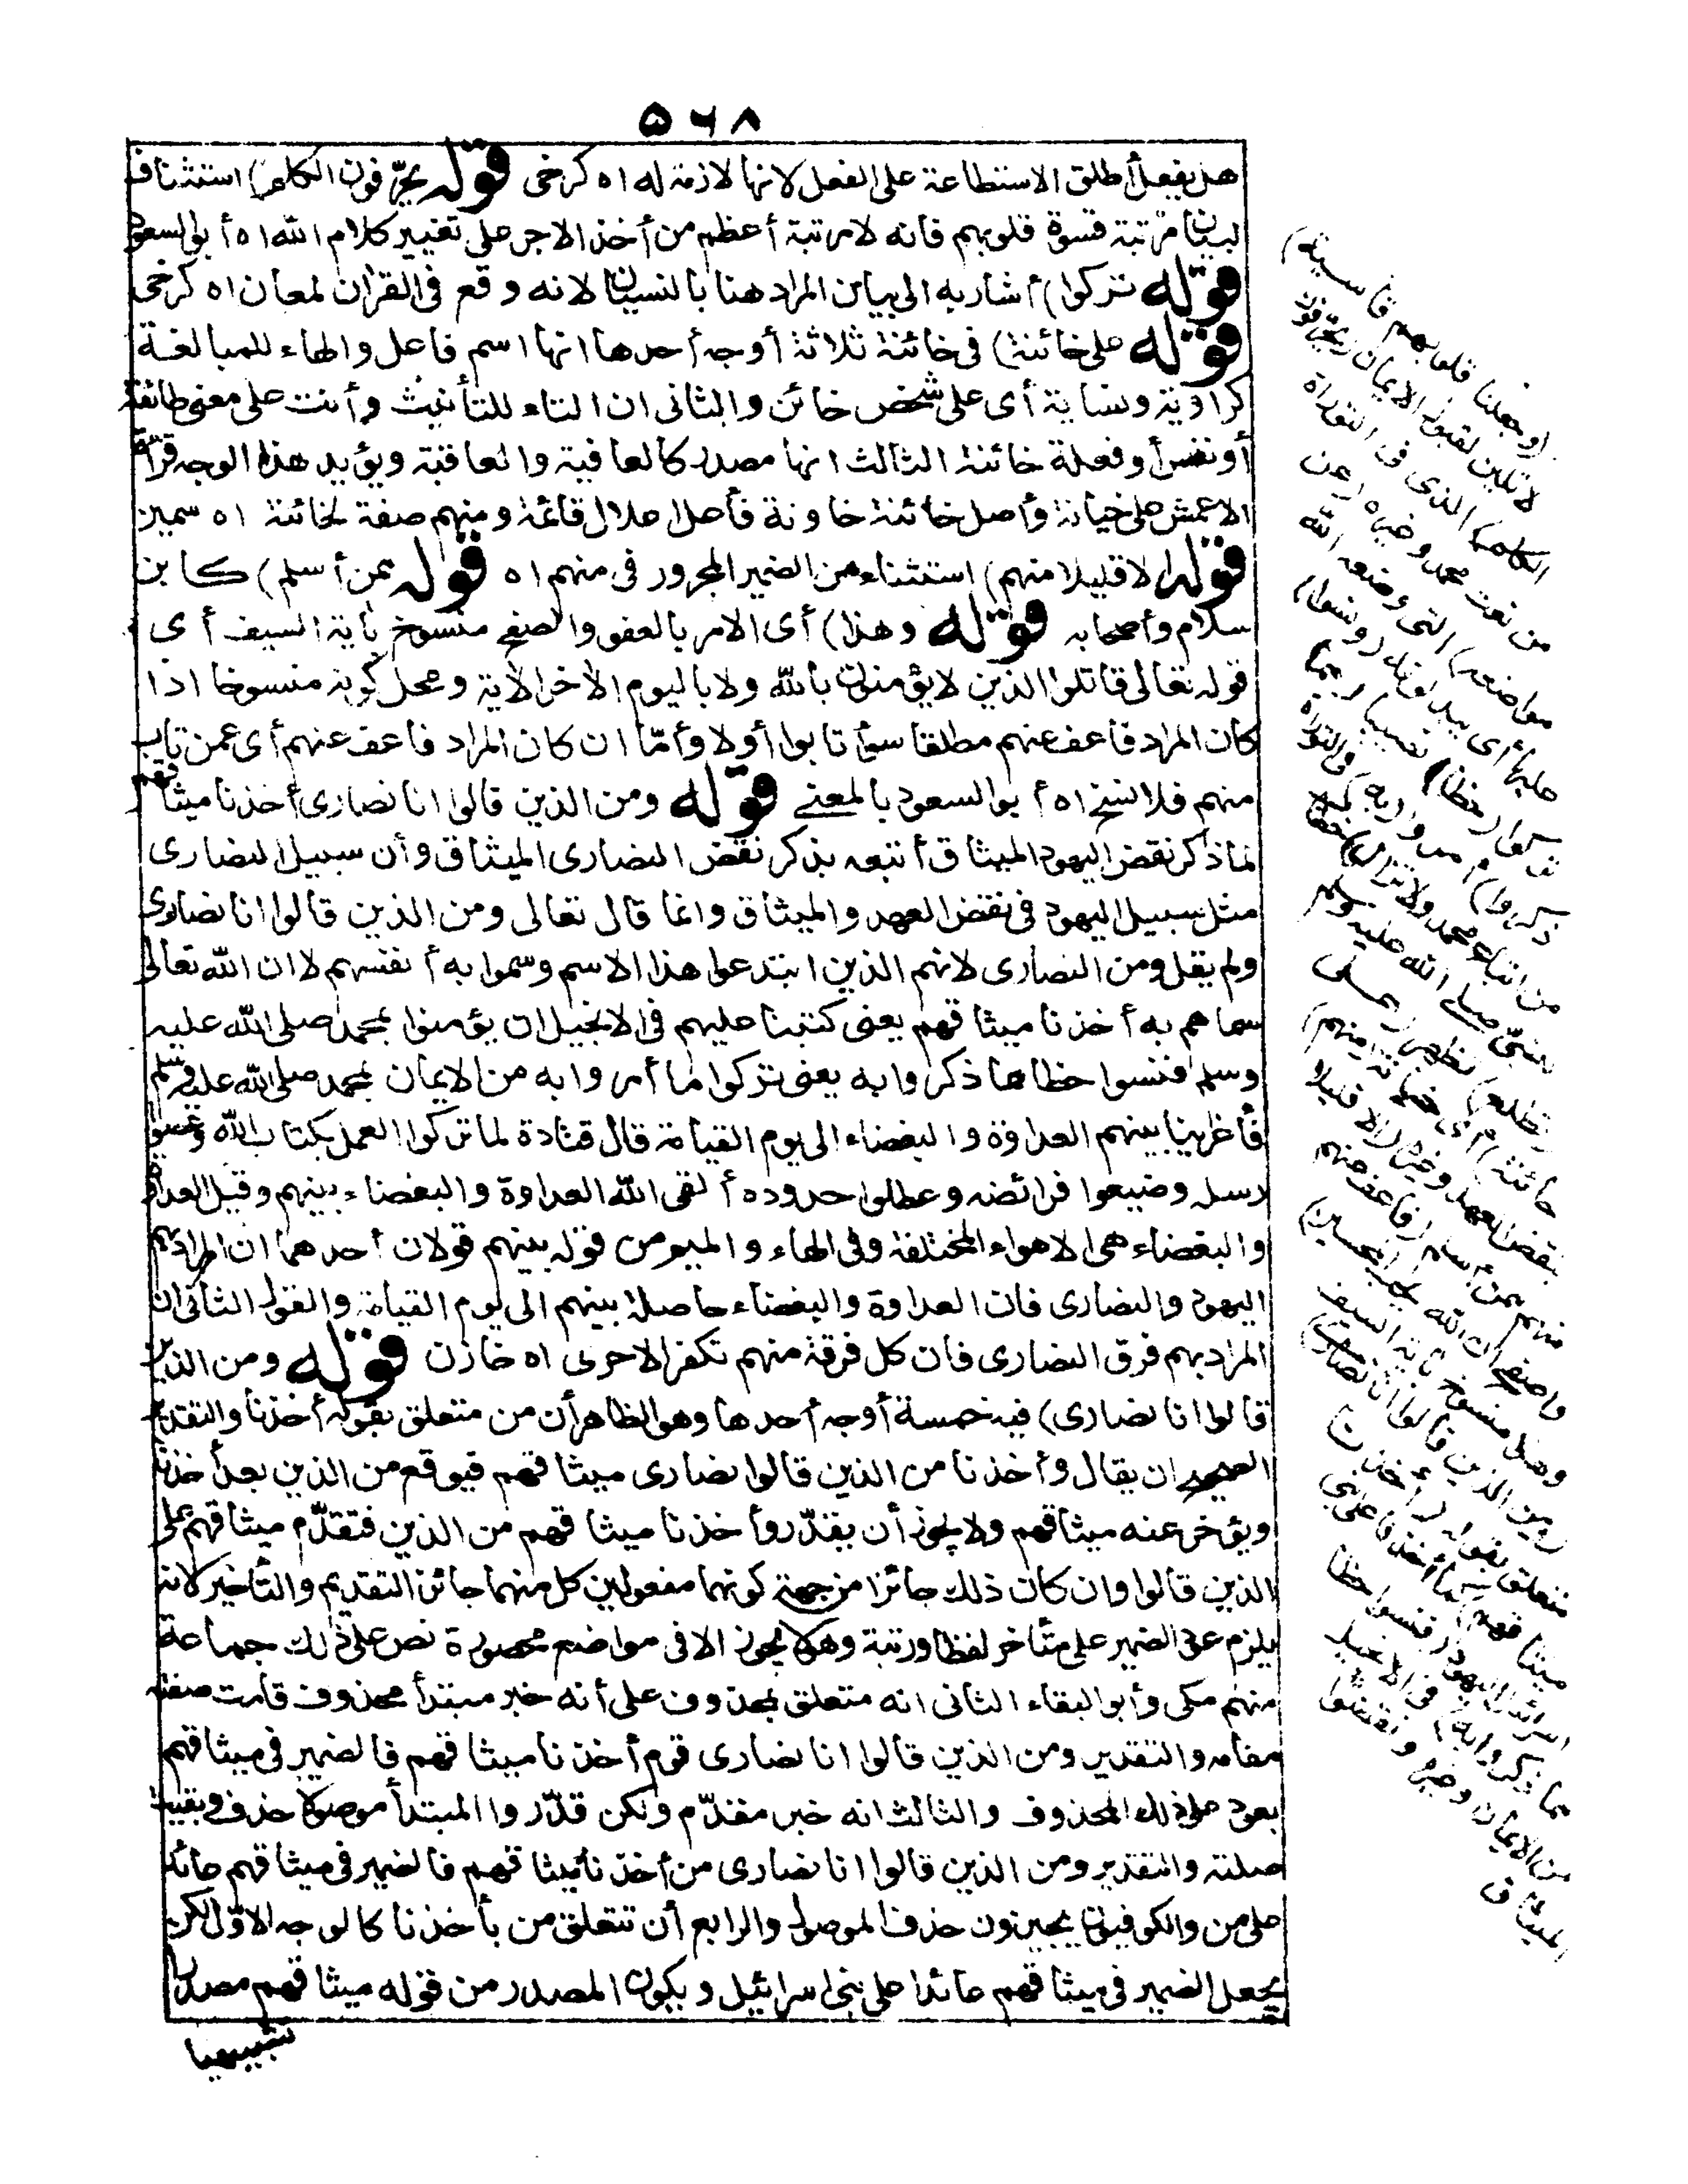 ٥٦٨
هل يفعل أطلق الاستطاعة على الفعل لانها لازمة له اه كرخى قوله يحرّفون الكلم) استئناف
لبيان مرتبة قسوة قلوبهم فانه لا مرتبة أعظم من أخذ الاجر على تغيير كلام الله اه أبو السعود
قوله تركوا) أشار به الى بيان المراد هنا بالنسيان لانه وقع فى القران لمعان اه كرخى
قوله على خائنة) فى خائنة ثلاثة أوجه أحدها انها اسم فاعل والهاء للمبالغة
كراوية ونسابة أى على شخص خائن والثانى ان التاء للتأنيث وأنث على معنى طائفة
أو نفس أو فعلة خائنة الثالث انها مصدر كالعافية والعاقبة ويؤيد هذا الوجه قراءة
الاعمش على خيانة وأصل خائنة خاونة فأعل اعلال قائمة ومنهم صفة لخائنة اه سمين
قوله الا قليلا منهم) استثناء من الضمير المجرور فى منهم اه قوله ممن أسلم) كابن
سلام وأصحابه قوله وهذا) أى الامر بالعفو والصفح منسوخ بآية السيف أى
قوله تعالى قاتلوا الذين لا يؤمنون بالله ولا باليوم الأخر الأية ومحل كونه منسوخا اذا
كان المراد فاعف عنهم مطلقا سواء تابوا أو لا وأمّا ان كان المراد فاعف عنهم أى عمن تاب
منهم فلا نسخ اه أبو السعود بالمعنى قوله ومن الذين قالوا انا نصارى أخذنا ميثاقهم
لما ذكر نقض اليهود الميثاق أتبعه بذكر نقض النصارى الميثاق وأن سبيل النصارى
مثل سبيل اليهود فى نقض العهد والميثاق وانما قال تعالى ومن الذين قالوا انا نصارى
ولم يقل ومن النصارى لانهم الذين ابتدعوا هذا الاسم وسموا به أنفسهم لا ان الله تعالى
سماهم به أخذنا ميثاقهم يعنى كتبنا عليهم فى الانجيل ان يؤمنوا بمحمد صلى الله عليه
وسلم فنسوا حظا مما ذكروا به يعنى تركوا ما أمروا به من الايمان بمحمد صلى الله عليه وسلم
فأغرينا بينهم العداوة والبغضاء الى يوم القيامة قال قتادة لما تركوا العمل بكتاب الله وعصوا
رسله وضيعوا فرائضه وعطلوا حدوده ألقى الله العداوة والبغضاء بينهم وقيل العداوة
والبغضاء هى الاهواء المختلفة وفى الهاء والميم من قوله بينهم قولان أحدهما ان المراد بهم
اليهود والنصارى فان العداوة والبغضاء حاصلة بينهم الى يوم القيامة والقول الثانى ان
المراد بهم فرق النصارى فان كل فرقة منهم تكفر الاخرى اه خازن قوله ومن الذين
قالوا انا نصارى) فيه خمسة أوجه أحدها وهو الظاهر أن من متعلق بقوله أخذنا والتقدير
الصحيح ان يقال وأخذنا من الذين قالوا نصارى ميثاقهم فيوقع من الذين بعد أخذنا
ويؤخر عنه ميثاقهم ولا يجوز أن يقدّر وأخذنا ميثاقهم من الذين فتقدّم ميثاقهم على
الذين قالوا وان كان ذلك جائزا من جهة كونهما مفعولين كل منهما جائز التقديم والتأخير لانه
يلزم عود الضمير على متأخر لفظا ورتبة وهو لا يجوز الا فى مواضع محصورة نص على ذلك جماعة
منهم مكى وأبو البقاء الثانى انه متعلق بمحذوف على أنه خبر مبتدأ محذوف قامت صفته
مقامه والتقدير ومن الذين قالوا انا نصارى قوم أخذنا ميثاقهم فالضمير فى ميثاقهم
يعود على ذلك المحذوف والثالث انه خبر مقدّم ولكن قدّروا المبتدأ موصولا حذف وبقيت
صلته والتقدير ومن الذين قالوا انا نصارى من أخذنا ميثاقهم فالضمير فى ميثاقهم عائد
على من والكوفيون يجيزون حذف الموصول والرابع أن تتعلق من بأخذنا كالوجه الاوّل لكن
يجعل الضمير فى ميثاقهم عائدا على بنى اسرائيل ويكون المصدر من قوله ميثاقهم مصدرا
تشبيهيا
(وجعلنا قلوبهم قاسية)
لا تلين لقبول الايمان (يحرّفون
الكلم) الذى فى التوراة
من نعت محمد وغيره (عن
مواضعه) التى وضعه الله
عليها أى يبدلونه (ونسوا)
تركوا (حظا) نصيبا (مما
ذكروا) أمروا (به) فى التوراة
من اتباع محمد (ولا تزال) خطاب
للنبىّ صلى الله عليه وسلم
(تطلع) تظهر (على
خائنة) أى خيانة (منهم)
بنقض العهد وغيره (الا قليلا
منهم) ممن أسلم (فاعف عنهم
واصفح ان الله يحب المحسنين)
وهذا منسوخ بآية السيف
(ومن الذين قالوا انا نصارى)
متعلق بقوله (أخذنا
ميثاقهم) كما أخذنا على بنى
اسرائيل اليهود (فنسوا حظا
مما ذكروا به) فى الانجيل
من الايمان وغيره ونقضوا
الميثاق